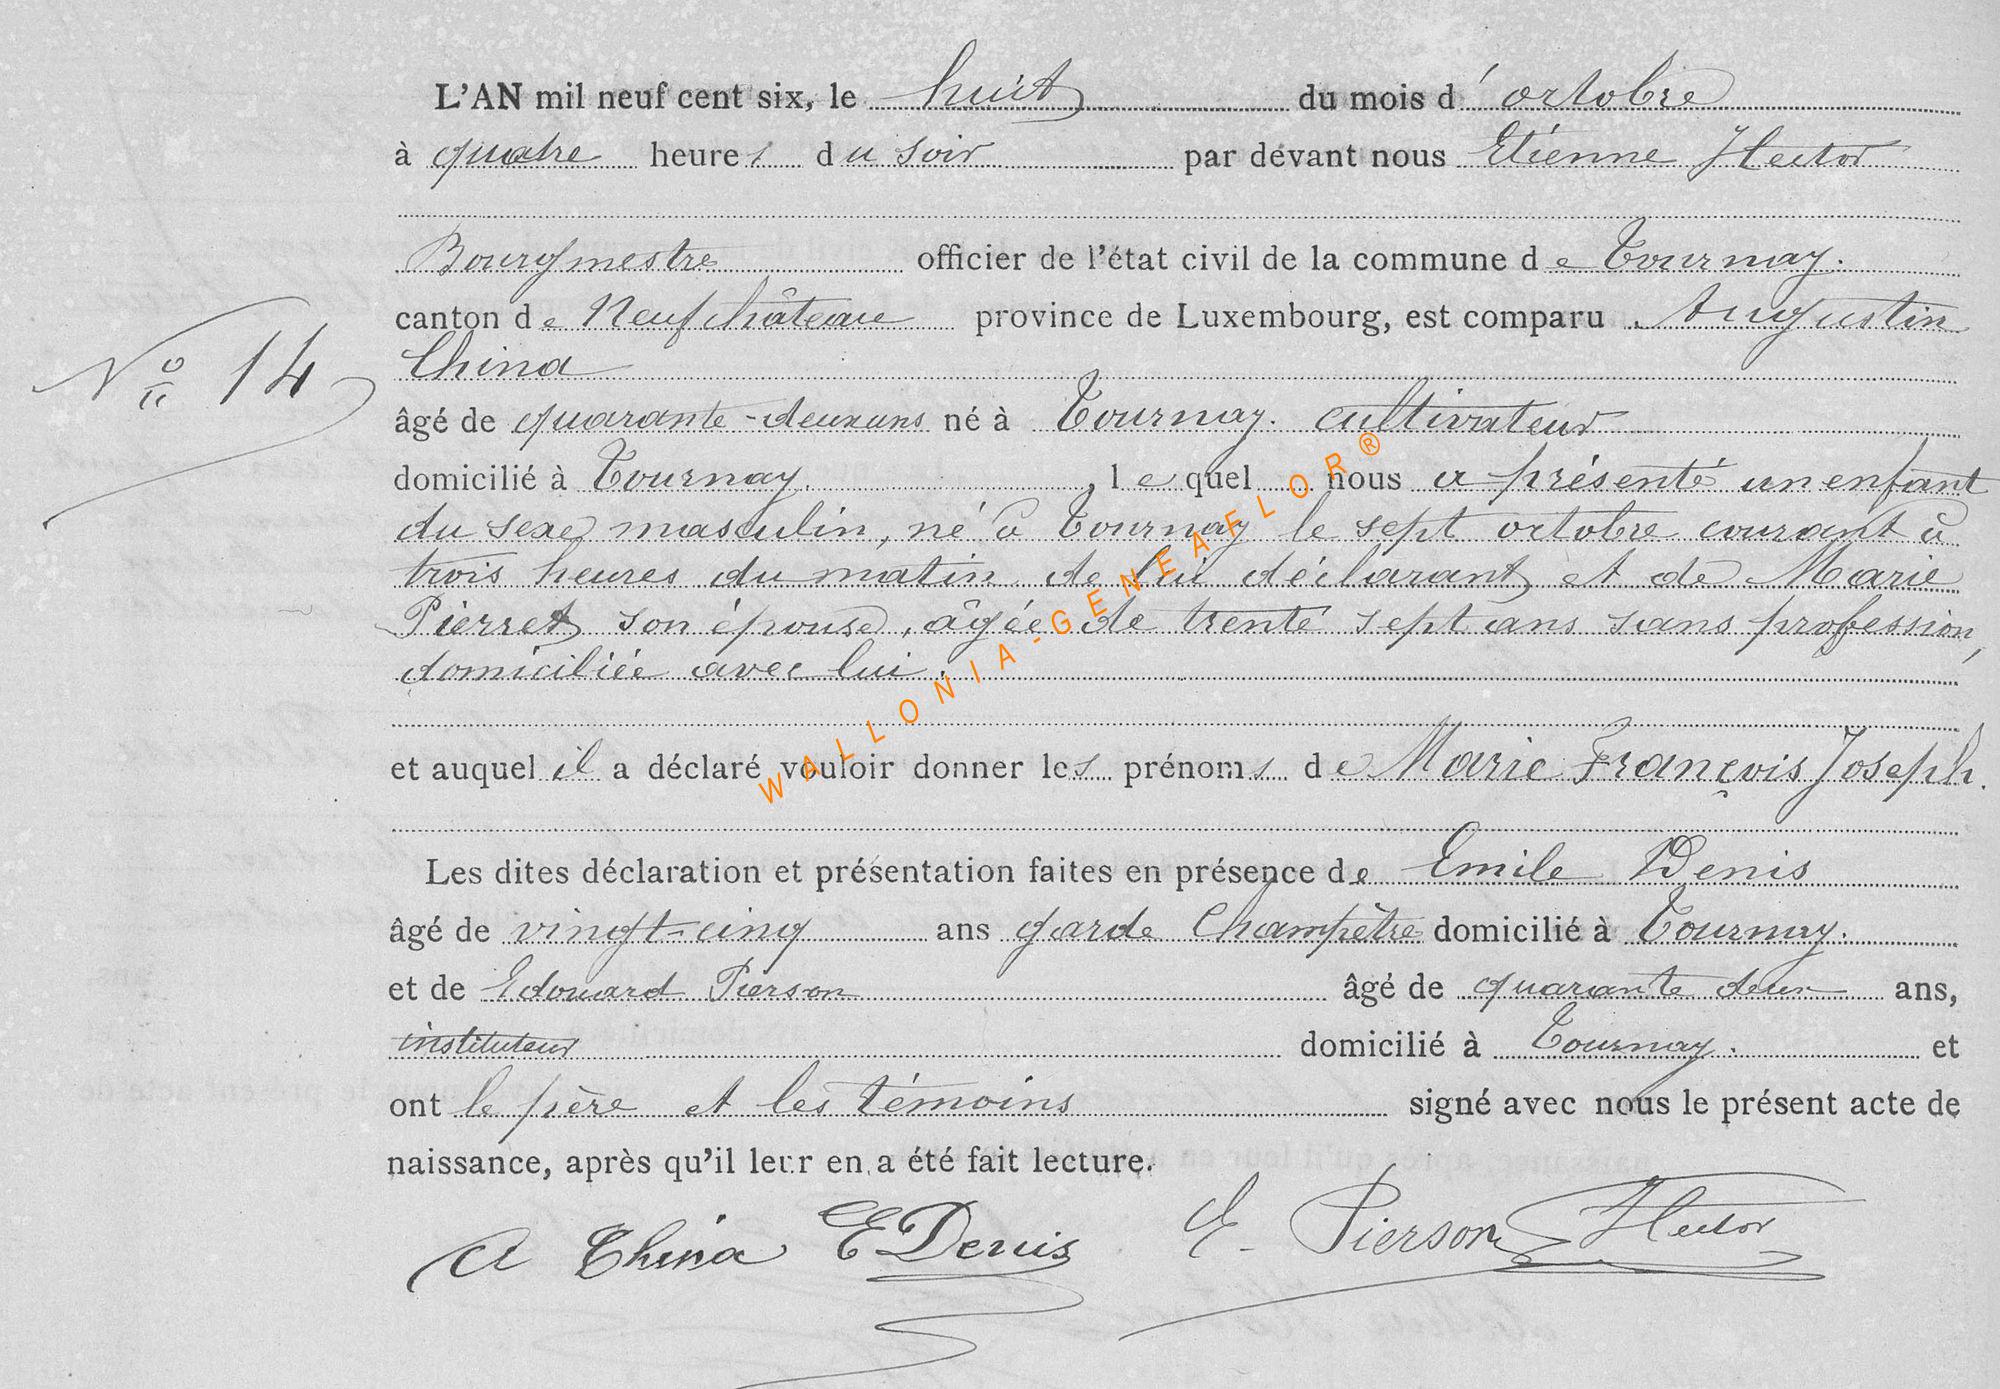 L'AN mil neuf cent six, le huit du mois d'octobre
à quatre heures du soir par devant nous Etienne Hector
Bourgmestre officier de l'état civil de la commune de Tournay.
canton de Neufchâteau province de Luxembourg, est comparu Augustin
China
Nº 14
âgé de quarante-deux ans né à Tournay. cultivateur
domicilié à Tournay, lequel nous a présenté un enfant
du sexe masculin, né à Tournay le sept octobre courant à
trois heures du matin de lui déclarant et de Marie
Pierret son épouse, âgée de trente sept ans sans profession,
domiciliée avec lui.
et auquel il a déclaré vouloir donner les prénoms de Marie François Joseph.
Les dites déclaration et présentation faites en présence de Emile Denis
âgé de vingt-cinq ans garde Champêtre domicilié à Tournay.
et de Edouard Pierson âgé de quarante deux ans,
instituteur domicilié à Tournay. et
ont le père et les témoins signé avec nous le présent acte de
naissance, après qu'il leur en a été fait lecture.
A China E Denis E. Pierson Hector
WALLONIA-GENEAFLOR®